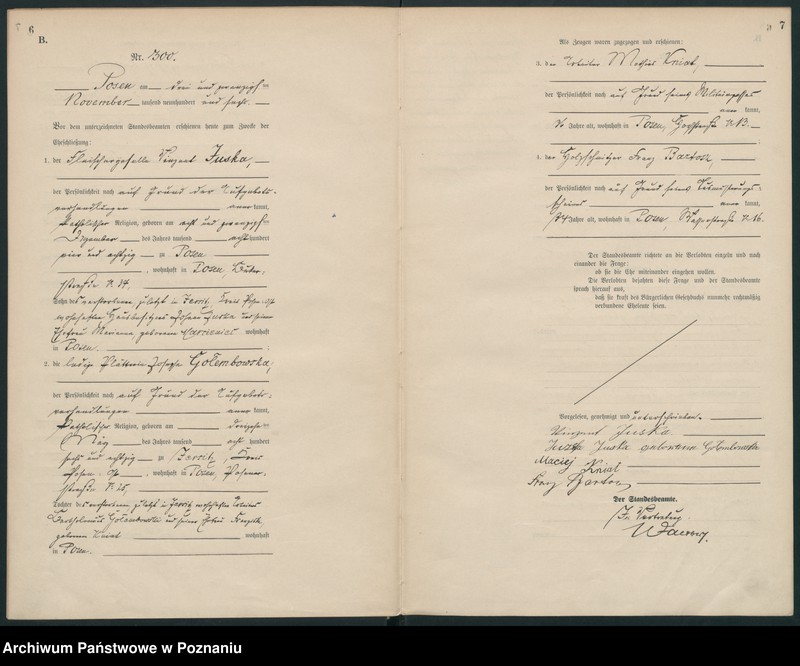 6
B.
Nr. 300.
Posen am drei und zwanzigsten
November tausend neunhundert und sechs.
Vor dem unterzeichneten Standesbeamten erschienen heute zum Zwecke der
Eheschließung:
1. der Fleischergeselle Vinzent Juska,
der Persönlichkeit nach auf Grund der Aufgebots-
verhandlungen kannt,
katholischer Religion, geboren am acht und zwanzigsten
Dezember des Jahres tausend achthundert
vier und achtzig zu Posen
, wohnhaft in Posen
straße N.
Sohn des verstorbenen, zuletzt in Jersitz, Kreis Posen Ost
wohnhaften Hausbesitzers Juska und seiner
Ehefrau Marianna, geborenen wohnhaft
in Posen.
2. die ledige Plätterin Josepha Golembowska,
der Persönlichkeit nach auf Grund der Aufgebots-
verhandlungen kannt,
katholischer Religion, geboren am
des Jahres tausend acht hundert
sechs und achtzig zu Jersitz, Kreis
Posen Ost, wohnhaft in Posen, Posener-
straße N. 25,
Tochter des verstorbenen, zuletzt in Jersitz wohnhaften
Bartholomäus Golembowski und seiner Ehefrau
geborenen Kniat wohnhaft
in Posen.
7
Als Zeugen waren zugezogen und erschienen:
3. der Arbeiter Kniat,
der Persönlichkeit nach auf Grund seines Militärpasses
kannt,
Jahre alt, wohnhaft in Posen,
4. der Holzschnitzer Franz Bartosz,
der Persönlichkeit nach auf Grund seines
kannt,
Jahre alt, wohnhaft in Posen, N. 16.
Der Standesbeamte richtete an die Verlobten einzeln und nach
einander die Frage:
ob sie die Ehe miteinander eingehen wollen.
Die Verlobten bejahten diese Frage und der Standesbeamte
sprach hierauf aus,
daß sie kraft des Bürgerlichen Gesetzbuchs nunmehr rechtmäßig
verbundene Eheleute seien.
Vorgelesen, genehmigt und unterschrieben
Vinzent Juska
Juska geborene Golembowska
Maciej Kniat
Franz Bartosz
Der Standesbeamte.
In Vertretung.
Archiwum Państwowe w Poznaniu